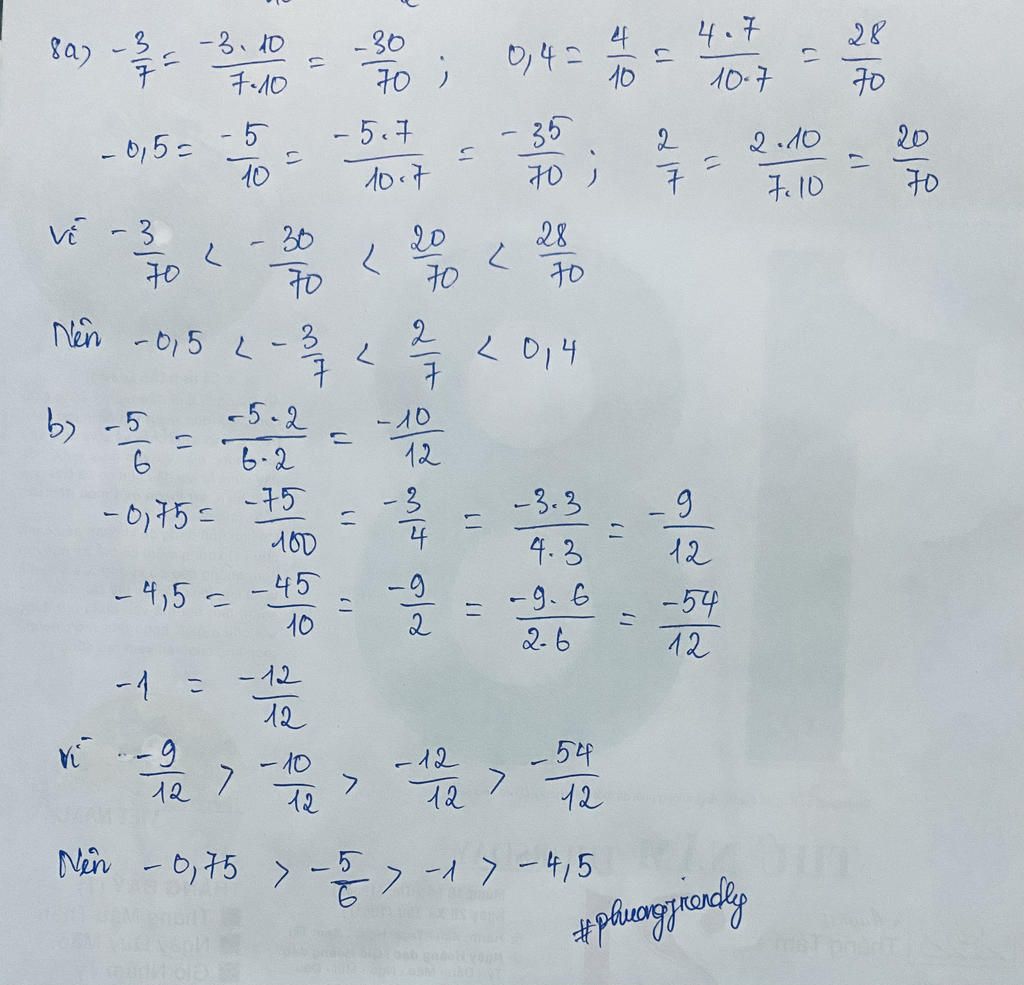 8a) -3/7 = -3.10/7.10 = -30/70 ; 0,4 = 4/10 = 4.7/10.7 = 28/70
-0,5 = -5/10 = -5.7/10.7 = -35/70 ; 2/7 = 2.10/7.10 = 20/70
Vì -3/70 < -30/70 < 20/70 < 28/70
Nên -0,5 < -3/7 < 2/7 < 0,4
b) -5/6 = -5.2/6.2 = -10/12
-0,75 = -75/100 = -3/4 = -3.3/4.3 = -9/12
-4,5 = -45/10 = -9/2 = -9.6/2.6 = -54/12
-1 = -12/12
Vì -9/12 > -10/12 > -12/12 > -54/12
Nên -0,75 > -5/6 > -1 > -4,5
#phuongfriendly